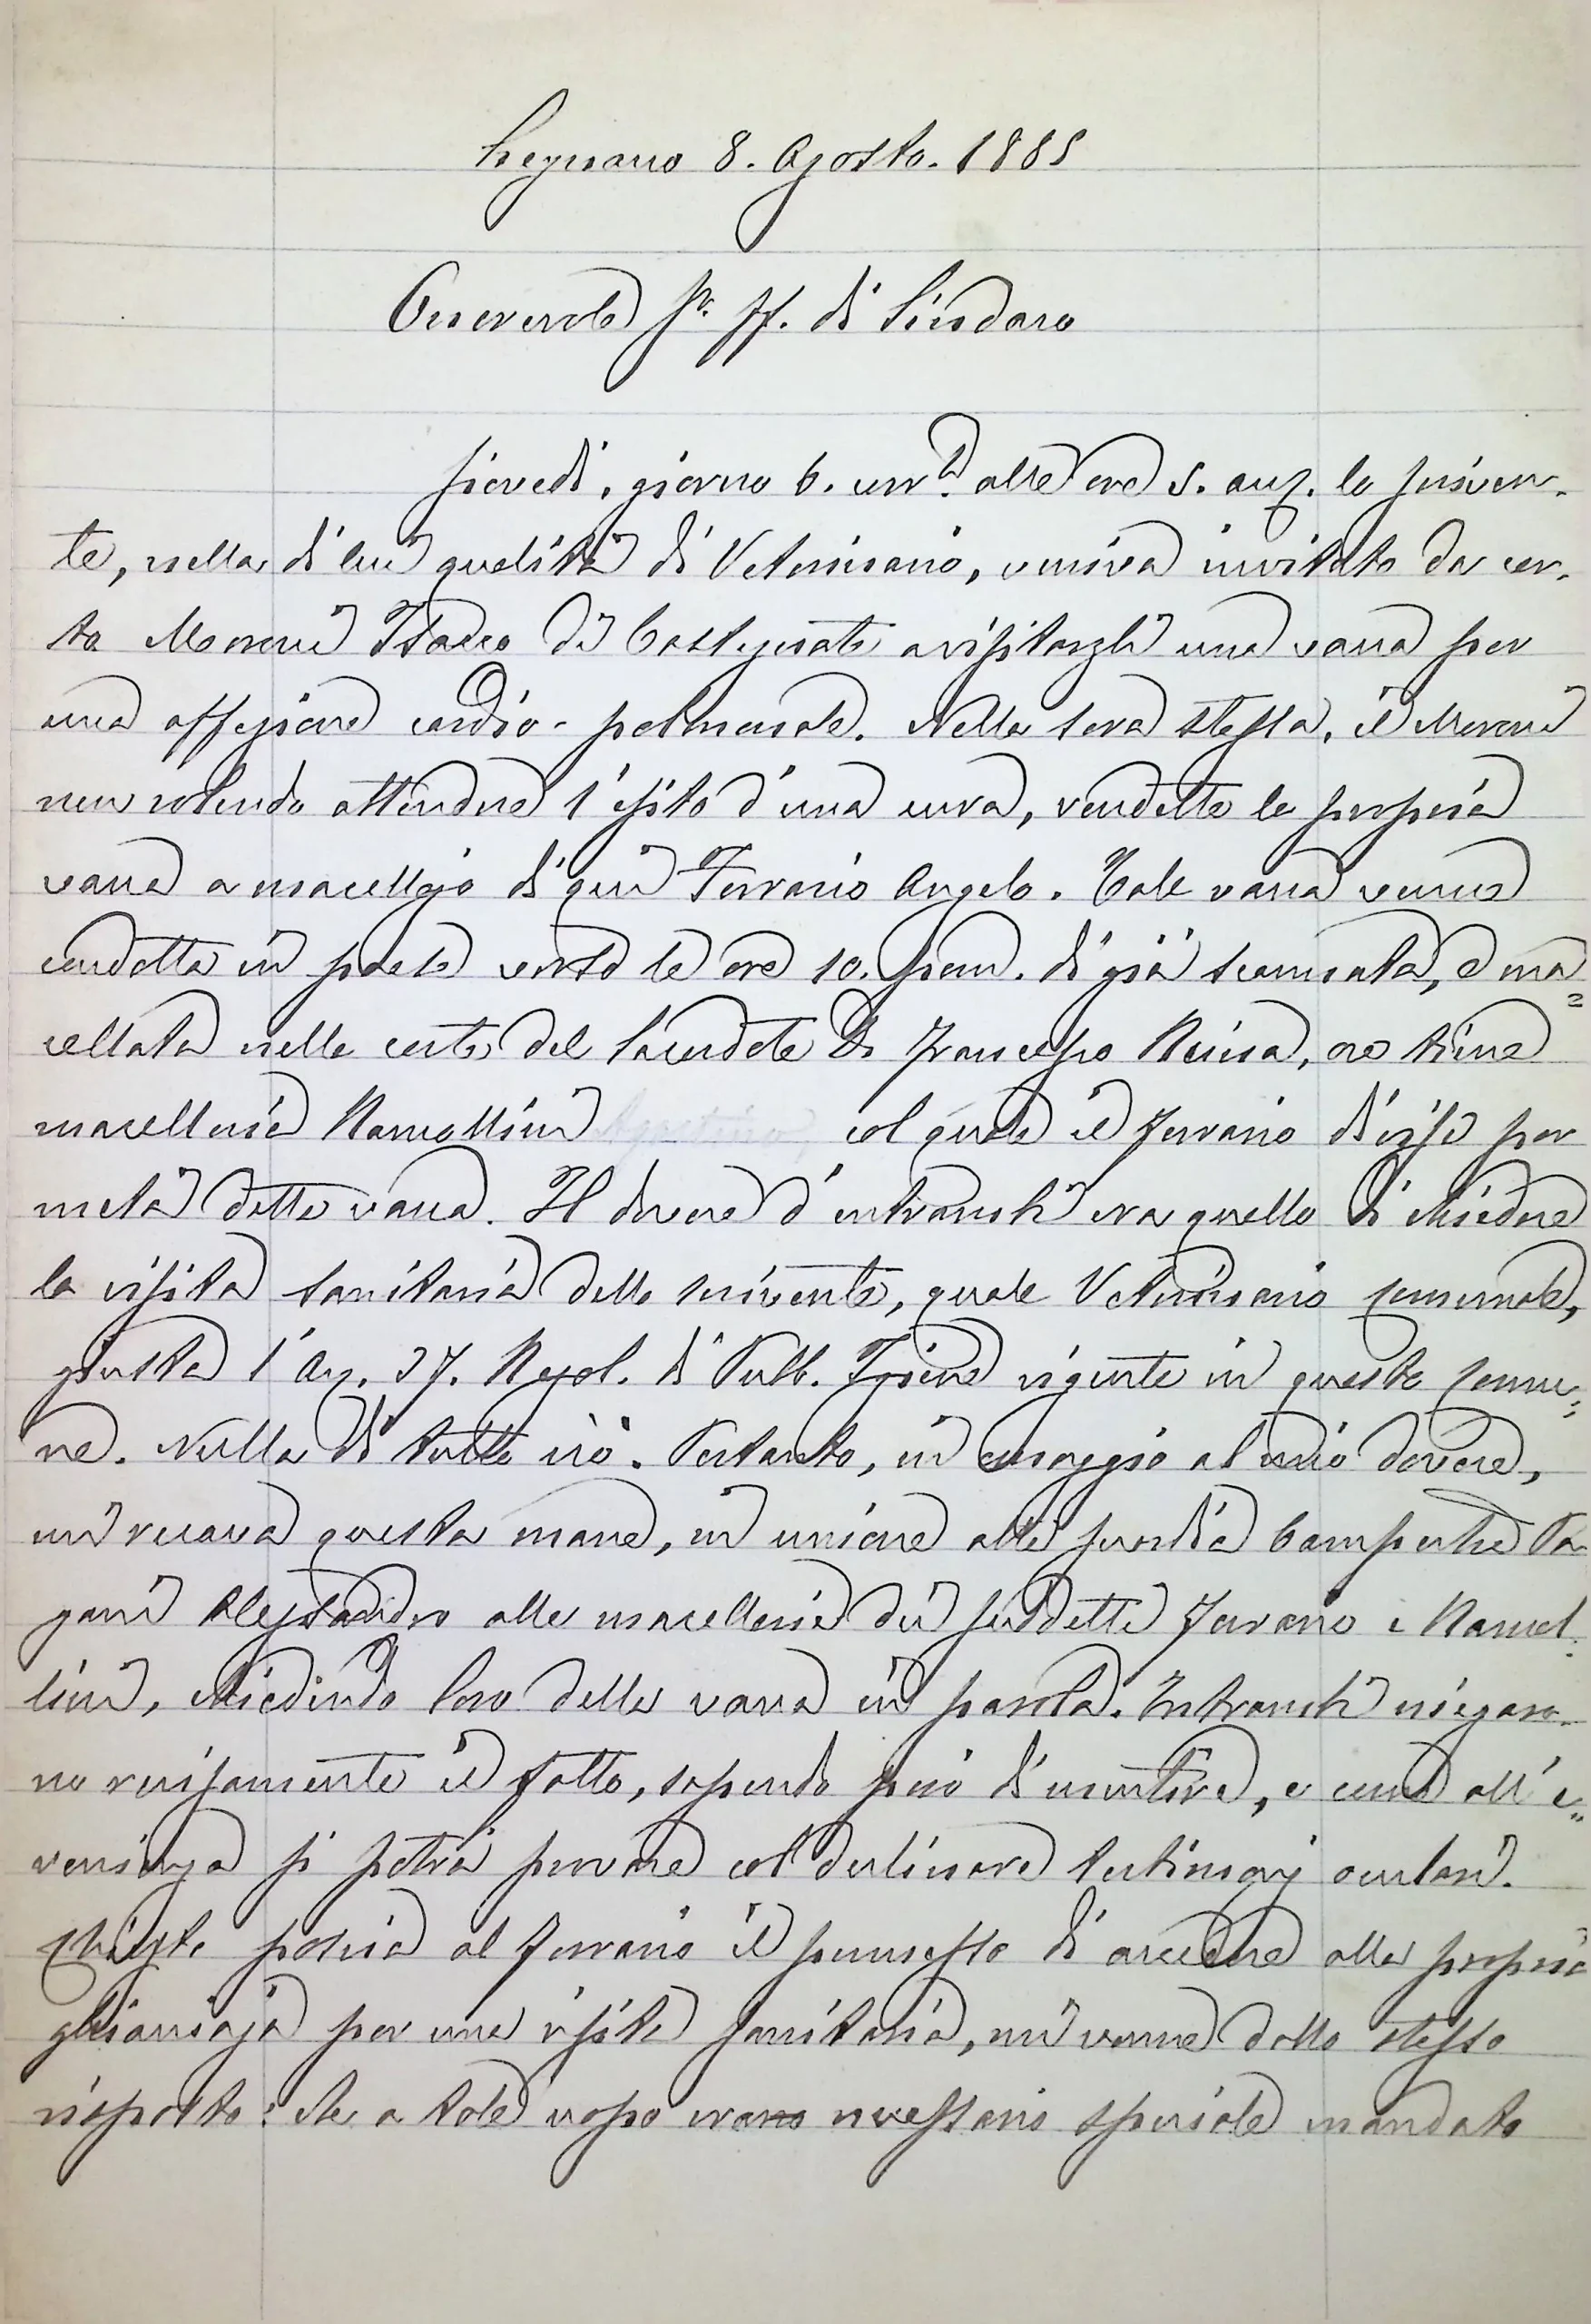 Legnano 8. Agosto. 1885
Onorevole Sr. ff. di Sindaco
Giovedì, giorno 6. corr.te alle ore 5. ant. lo scriven-
te, nella di lui qualità di Veterinario, veniva invitato da cer-
to Moroni Isacco di Castegnate a visitargli una vacca per
una affezione cardio-polmonale. Nella sera stessa, il Moroni
non volendo attendere l'esito d'una cura, vendette la propria
vacca a macellajo di qui Ferrario Angelo. Tale vacca venne
condotta in paese verso le ore 10. pom. di già scannata, e ma=
cellata nella corte del Sacerdote D. Francesco Raina, ove tiene
macelleria Ramollini Agostino col quale il Ferrario divise per
metà detta vacca. Il dovere d'entrambi era quello di chiedere
la visita sanitaria dello scrivente, quale Veterinario comunale,
giusta l'Ar. 27. Regol. di Pubb. Igiene vigente in questo Comu=
ne. Nulla di tutto ciò. Pertanto, in omaggio al mio dovere,
mi recava questa mane, in unione alla guardia Campestre Pa
gani Alessandro alle macellerie dei suddetti Ferrario e Ramol-
lini, chiedendo loro della vacca in parola. Entrambi negaro-
no recisamente il fatto, sapendo però di mentire, e come all'e=
venienza si potrà provare col declinare testimonj oculari.
Chiesto poscia al Ferrario il permesso di accedere alla propria
ghiacciaja per una visita sanitaria, mi venne dallo stesso
risposto: che a tale uopo era necessario speciale mandato